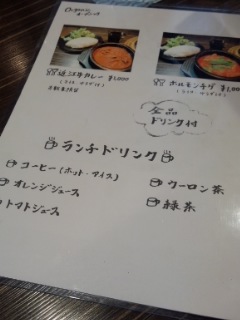 近江牛カレー ¥1,000
ホルモンチゲ ¥1,000
全品
ドリンク付
ランチドリンク
コーヒー(ホット・アイス)
オレンジジュース
トマトジュース
ウーロン茶
緑茶